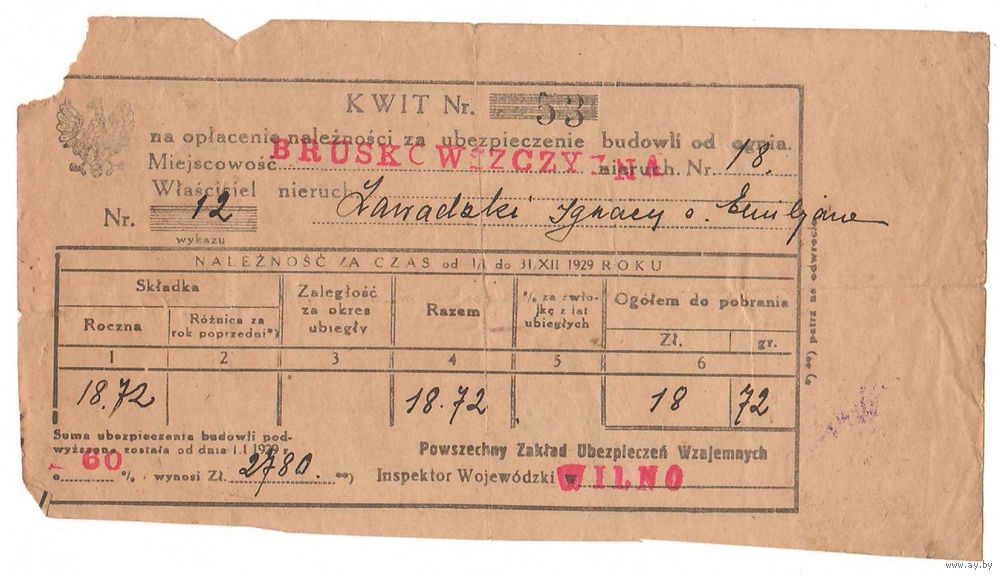 KWIT Nr. 53
na opłacenie należności za ubezpieczenie budowli od ognia.
Miejscowość BRUSKOWSZCZYZNA nieruch. Nr. 18.
Właściciel nieruch. Zawadzki Ignacy s. Emiljana
Nr. 12
wykazu
NALEŻNOŚĆ ZA CZAS od 1/I do 31/XII 1929 ROKU
Składka
Roczna
Różnica za rok poprzedni*)
Zaległość za okres ubiegły
Razem
% za zwłokę z lat ubiegłych
Ogółem do pobrania
Zł. gr.
1 2 3 4 5 6
18.72 18.72 18 72
Suma ubezpieczenia budowli pod-
wyższona została od dnia 1.I 1929
o 60 % wynosi Zł. 2780. **)
Powszechny Zakład Ubezpieczeń Wzajemnych
Inspektor Wojewódzki w WILNO
*) **) patrz na odwrocie
www.ay.by